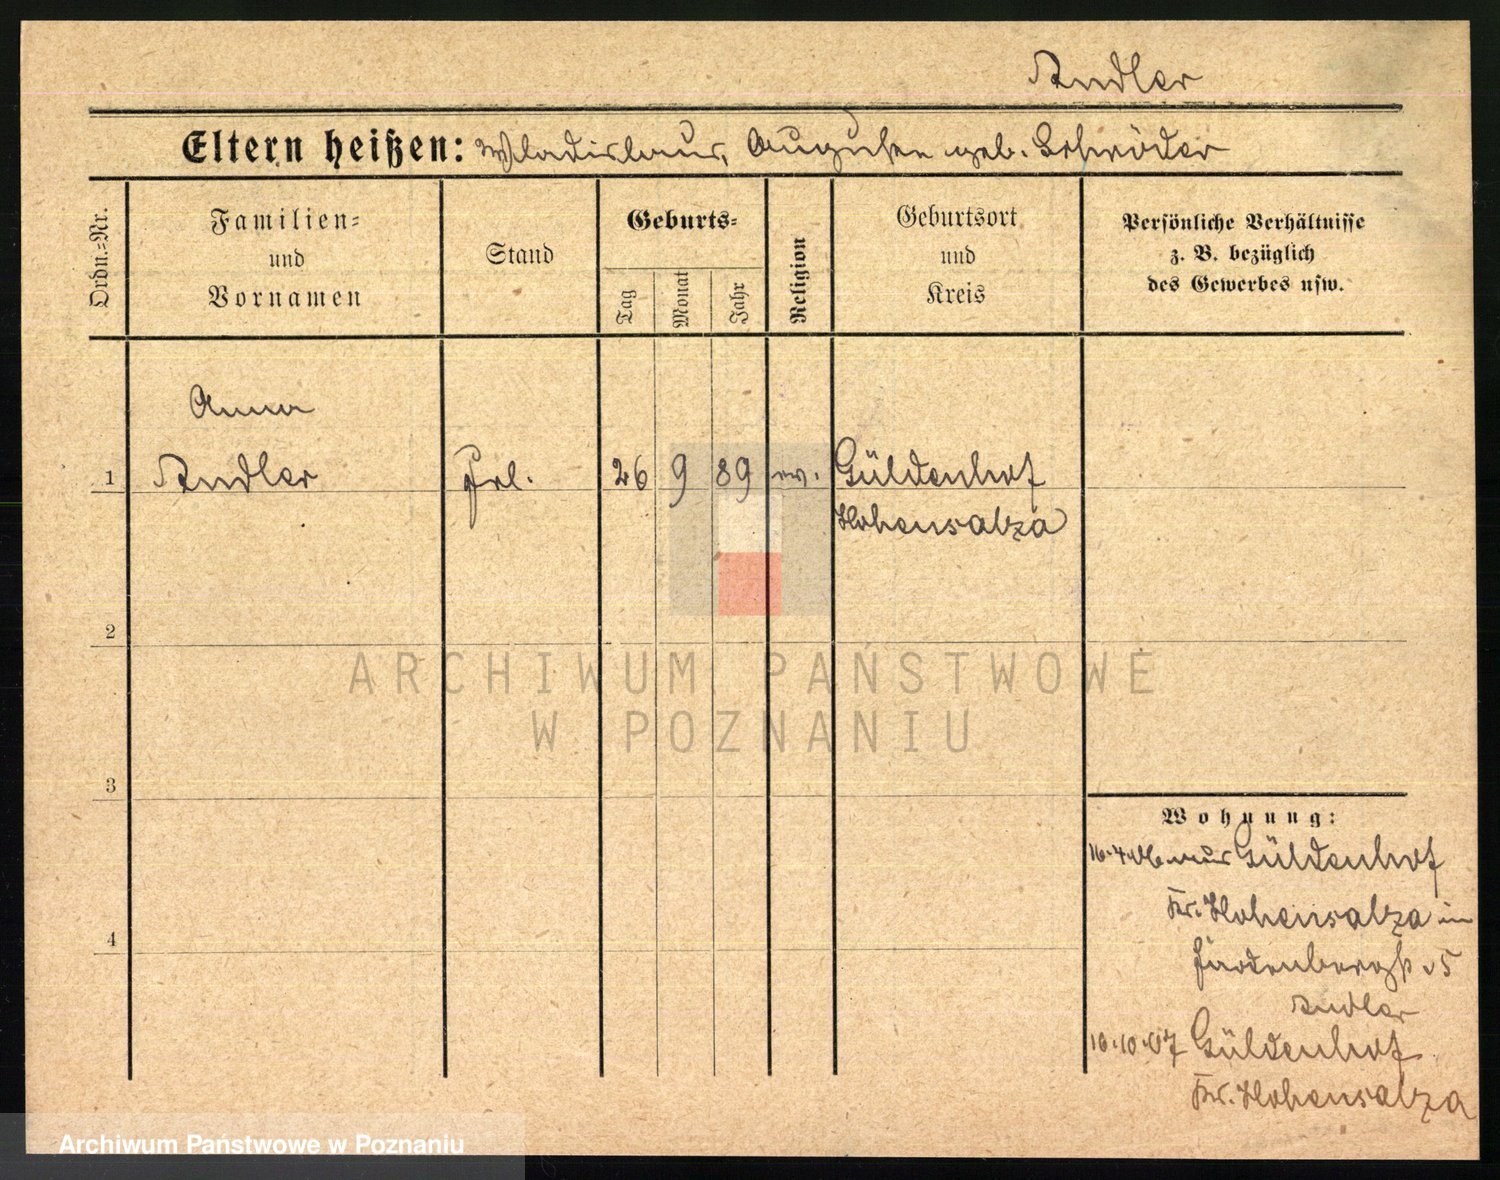 Andler
Eltern heißen: Wladislaus, Auguste geb. Schröder
Ordn.=Nr.
Familien=
und
Vornamen
Stand
Geburts=
Tag
Monat
Jahr
Religion
Geburtsort
und
Kreis
Persönliche Verhältnisse
z. B. bezüglich
des Gewerbes usw.
Anna
1 Andler Frl. 26 9 89 ev. Güldenhof
Hohensalza
2
3
4
Wohnung:
16.4.06 aus Güldenhof
Kr. Hohensalza in
5
Andler
10.10.07 Güldenhof
Kr. Hohensalza
ARCHIWUM PAŃSTWOWE
W POZNANIU
Archiwum Państwowe w Poznaniu